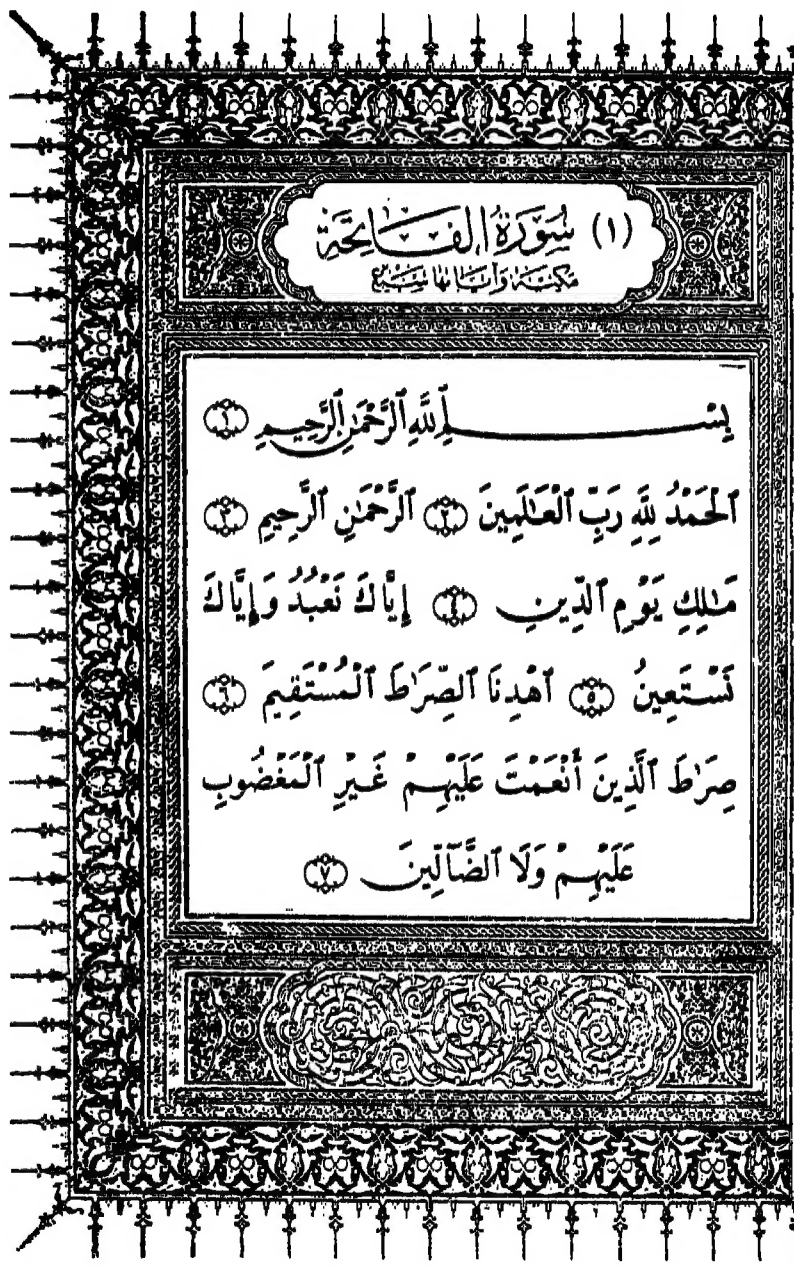 (١) سُورَةُ الفَاتِحَة
مكيّة وآياتها سَبْع
بِسْمِ ٱللَّهِ ٱلرَّحْمَٰنِ ٱلرَّحِيمِ ١
ٱلْحَمْدُ لِلَّهِ رَبِّ ٱلْعَٰلَمِينَ ٢ ٱلرَّحْمَٰنِ ٱلرَّحِيمِ ٣
مَٰلِكِ يَوْمِ ٱلدِّينِ ٤ إِيَّاكَ نَعْبُدُ وَإِيَّاكَ
نَسْتَعِينُ ٥ ٱهْدِنَا ٱلصِّرَٰطَ ٱلْمُسْتَقِيمَ ٦
صِرَٰطَ ٱلَّذِينَ أَنْعَمْتَ عَلَيْهِمْ غَيْرِ ٱلْمَغْضُوبِ
عَلَيْهِمْ وَلَا ٱلضَّآلِّينَ ٧